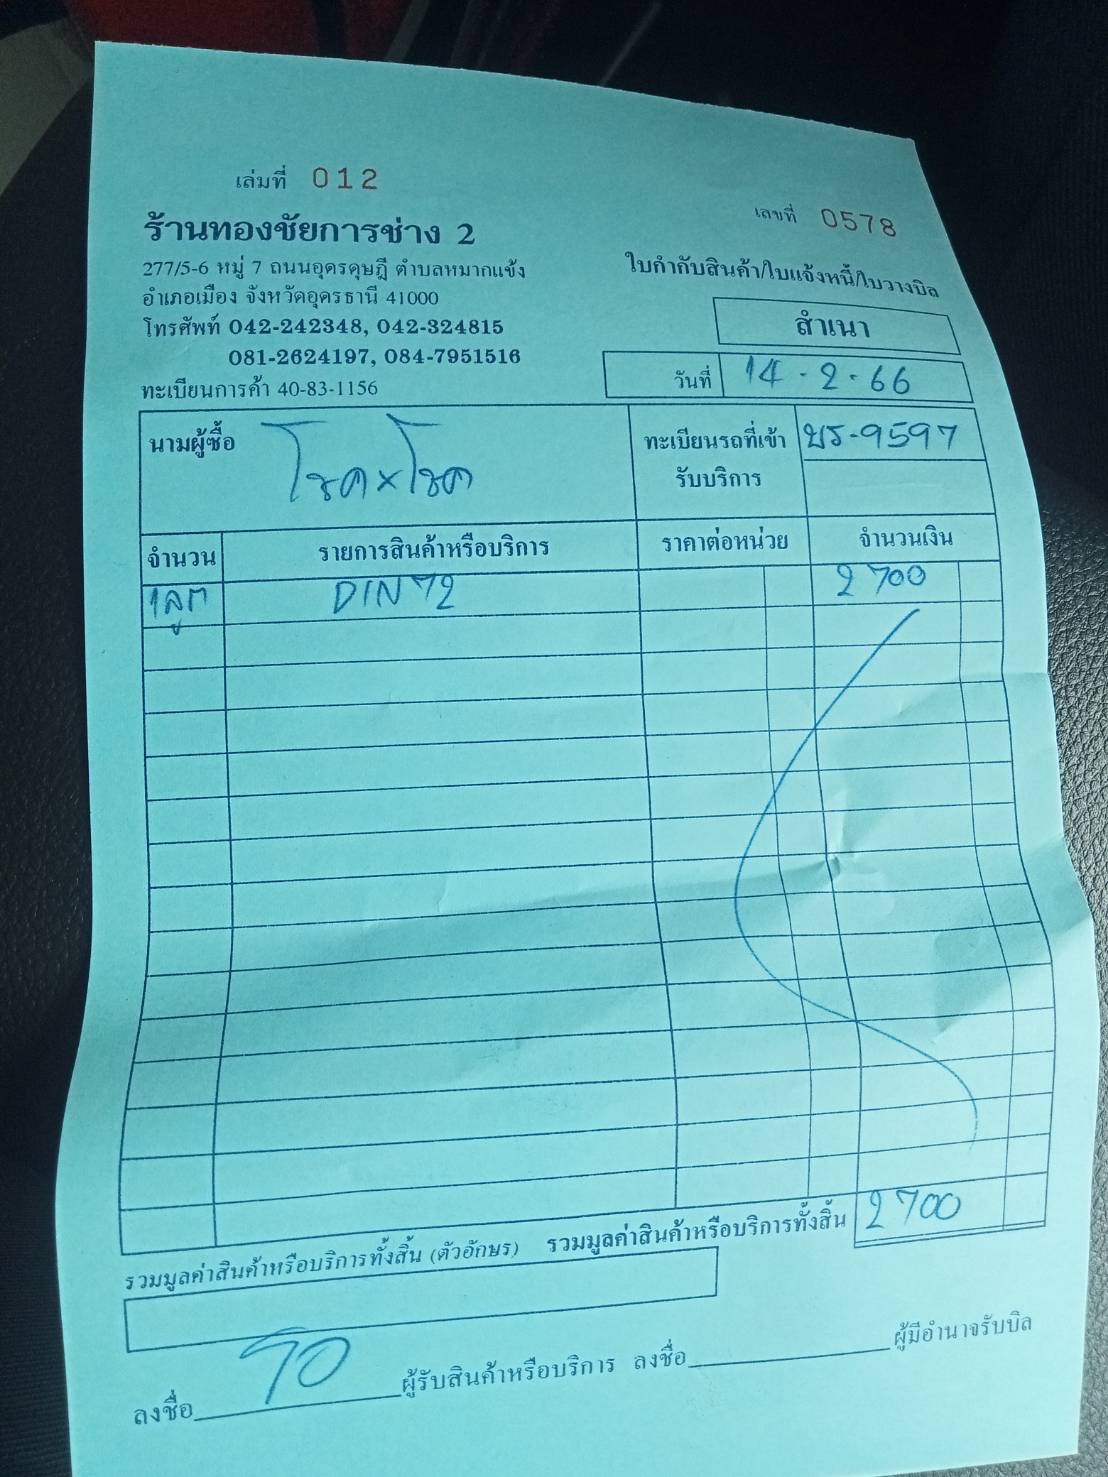 เล่มที่ 012
เลขที่ 0578
ร้านทองชัยการช่าง 2
277/5-6 หมู่ 7 ถนนอุดรดุษฎี ตำบลหมากแข้ง
อำเภอเมือง จังหวัดอุดรธานี 41000
โทรศัพท์ 042-242348, 042-324815
081-2624197, 084-7951516
ทะเบียนการค้า 40-83-1156
ใบกำกับสินค้า/ใบแจ้งหนี้/ใบวางบิล
สำเนา
วันที่ 14-2-66
นามผู้ซื้อ โชค×โชค
ทะเบียนรถที่เข้า บร-9597
รับบริการ
จำนวน รายการสินค้าหรือบริการ ราคาต่อหน่วย จำนวนเงิน
1ลูก DIN72 2700
รวมมูลค่าสินค้าหรือบริการทั้งสิ้น (ตัวอักษร) รวมมูลค่าสินค้าหรือบริการทั้งสิ้น 2700
ลงชื่อ ผู้รับสินค้าหรือบริการ ลงชื่อ ผู้มีอำนาจรับบิล